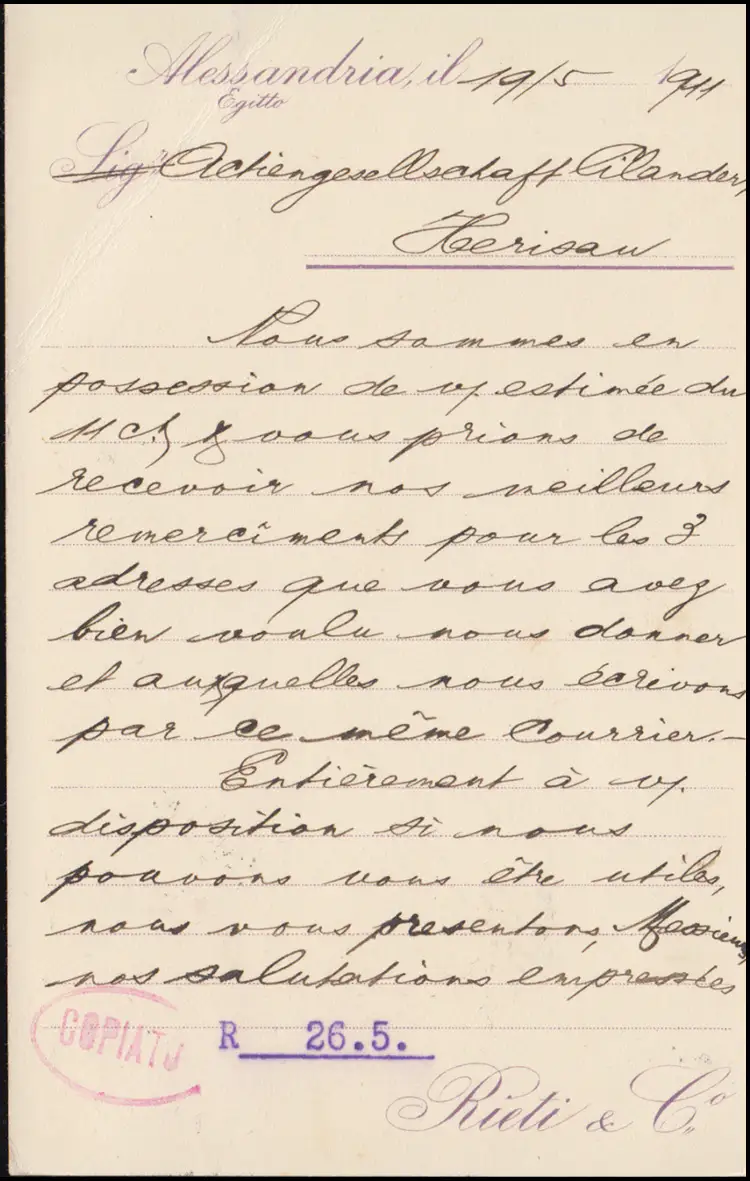 Alessandria, il 19/5 1911
Egitto
Sig. Actiengesellschaft Cilander,
Herisau
Nous sommes en
possession de v/. estimée du
11 ct, & vous prions de
recevoir nos meilleurs
remercîments pour les 3
adresses que vous avez
bien voulu nous donner
et auxquelles nous écrivons
par ce même courrier.-
Entièrement à v/.
disposition si nous
pouvons vous être utiles,
nous vous presentons, Messieurs,
nos salutations empressées
COPIATO
R 26.5.
Rieti & Co.